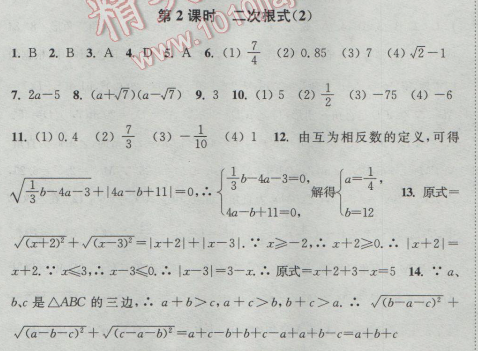 第 2 课时 二次根式(2)
1. B 2. B 3. A 4. D 5. A 6. (1) 7/4 (2) 0.85 (3) 7 (4) √2-1
7. 2a-5 8. (a+√7)(a-√7) 9. 3 10. (1) 5 (2) 1/2 (3) -75 (4) -6
11. (1) 0.4 (2) 7/3 (3) -1/10 (4) 1 12. 由互为相反数的定义,可得
√(1/3 b-4a-3)+|4a-b+11|=0,∴ {1/3 b-4a-3=0, 4a-b+11=0, 解得 {a=1/4, b=12 13. 原式=
√((x+2)²)+√((x-3)²)=|x+2|+|x-3|.∵ x≥-2,∴ x+2≥0.∴ |x+2|=
x+2.∵ x≤3,∴ x-3≤0.∴ |x-3|=3-x.∴ 原式=x+2+3-x=5 14. ∵ a、
b、c 是△ABC 的三边,∴ a+b>c,a+c>b,b+c>a.∴ √((b-a-c)²)+
√((a-b-c)²)+√((c-a-b)²)=a+c-b+b+c-a+a+b-c=a+b+c